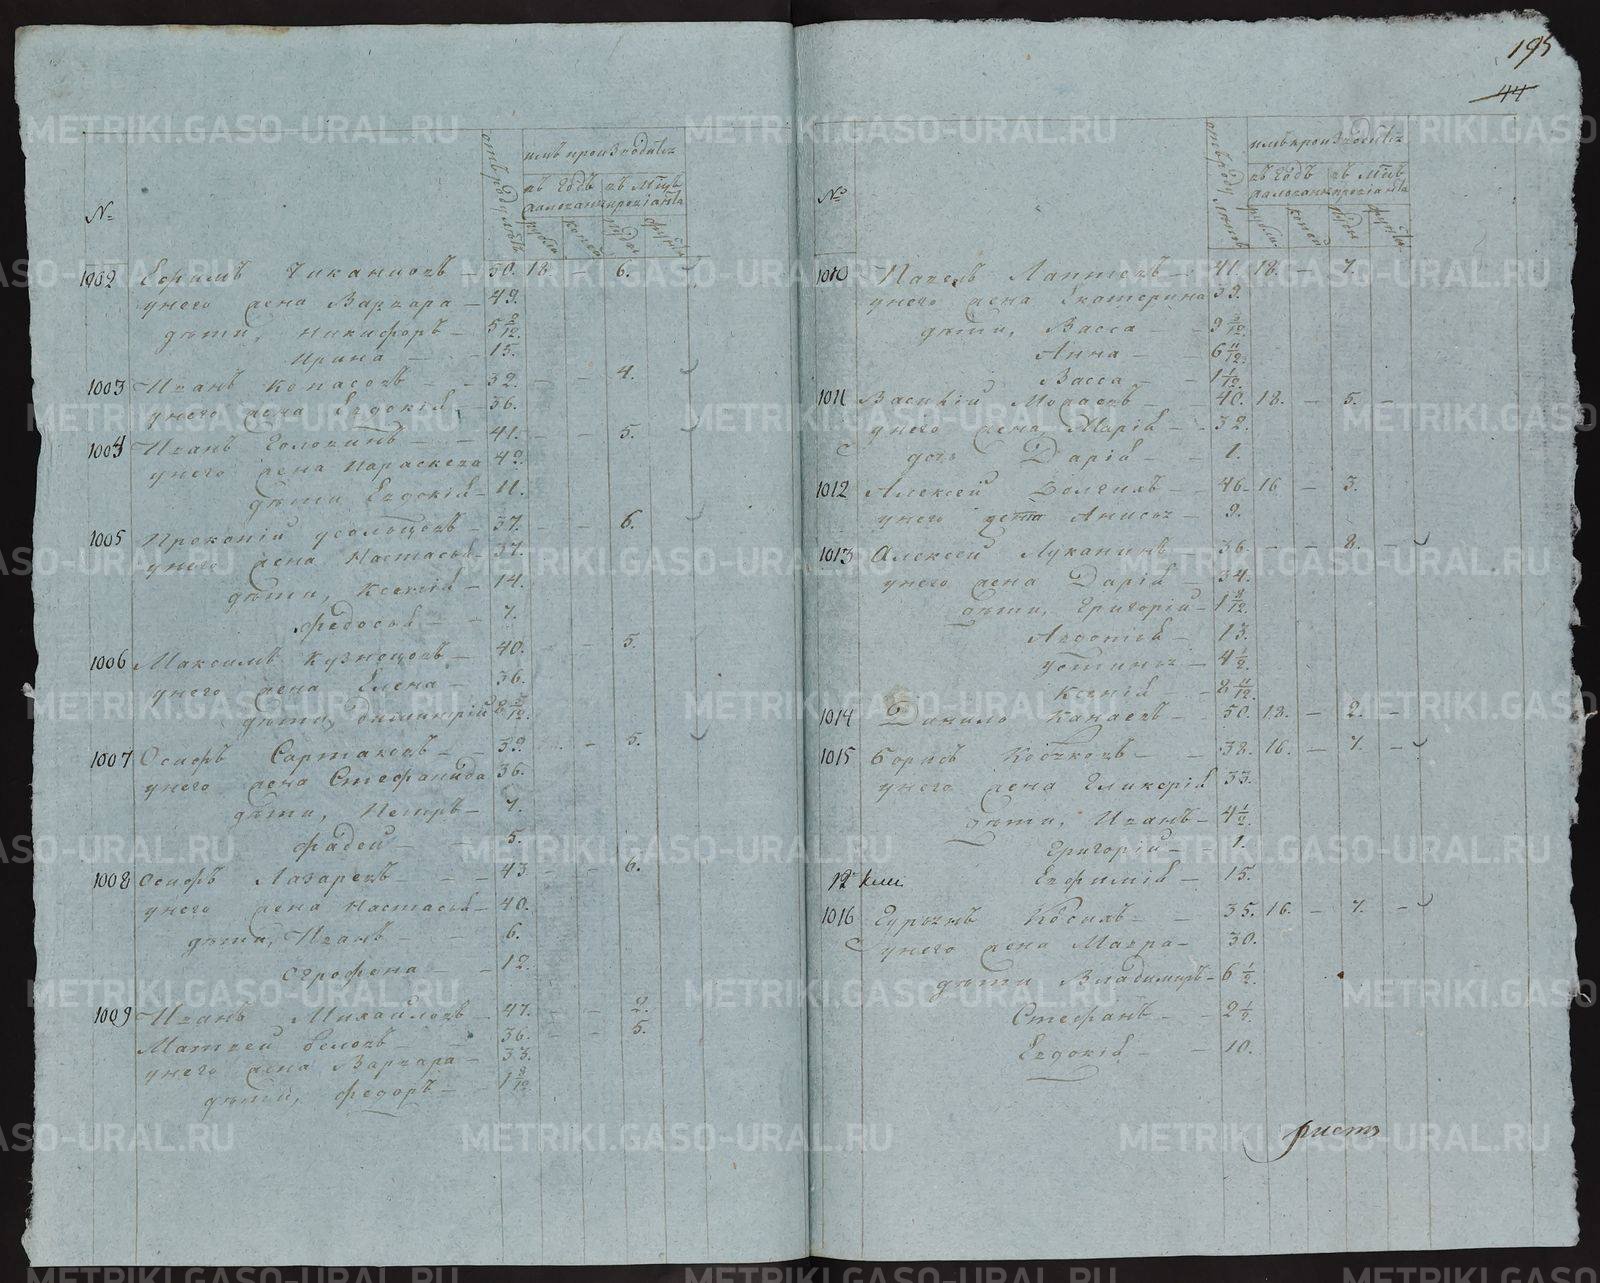 195
44
№
отъ роду лѣтъ
имъ производитса
въ годъ
въ мцъ
жалованья
провіанта
рубли
копей
пуды
фунты
1002 Ефимъ Чиканцовъ — 50. 18. — 6.
у него жена Варвара — 49.
дѣти, Никифоръ — 5 8/12.
Ирина — — 15.
1003 Иванъ — — 32. — — 4.
у него жена Евдокія — 36.
1004 Иванъ Головинъ — — 41. — — 5.
у него жена Параскева 49.
дѣти Евдокія — 11.
1005 Прокопій Усольцовъ — 37. — — 6.
у него жена Настасья — 37.
дѣти, Ксенія — 14.
Федосья — — 7.
1006 Максимъ Кузнецовъ — 40. — 5.
у него жена Елена — 36.
дѣти, Димитрій 8
1007 Осипъ Сартаковъ — — 39. — 5.
у него жена Стефанида 36.
дѣти, Петръ — 7.
Фадей — — 5.
1008 Осипъ Лазаревъ — — 43 — — 6.
у него жена Настасья — 40.
дѣти, Иванъ — — 6.
Огрофена — — 12.
1009 Иванъ Михайловъ — 47. — — 2.
Матвей Беловъ — — 36. — — 5.
у него жена Варвара — 33.
дѣти, Федоръ — — 1 8/12
№
отъ роду лѣтъ
имъ производитса
въ годъ
въ мцъ
жалованья
провіанта
рубли
копей
пуды
фунты
1010 Павелъ Лаптевъ — 41. 18. — 7.
у него жена Екатерина 39.
дѣти, Васса — — 9 3/12.
Анна — — 6 11/12.
Васса — — 1 1/12.
1011 Василій — — 40. 18. — 5. —
у него жена Марія — — 32.
дочь Дарія — — 1.
1012 Алексей — — 46. 16 — 3.
у него Анисья — 9.
1013 Алексей Луканинъ — 36. — — 8. —
у него жена Дарія — 34.
дѣти, Григорій — 1 8/12.
Авдотья — 13.
Устинья — 4 1/2.
Ксенія — — 8 11/12.
1014 Данило Канаевъ — — 50. 18. — 2. —
1015 Борисъ — — 38. 16. — 7. —
у него жена Гликерія 33.
дѣти, Иванъ — 4 1/2.
Григорій — — 1.
Евфимія — 15.
1016 — — 35. 16. — 7. —
у него жена Мавра — 30.
дѣти Владимиръ — 6 1/2.
Стефанъ — — 2 1/2.
Евдокія — — 10.
METRIKI.GASO-URAL.RU